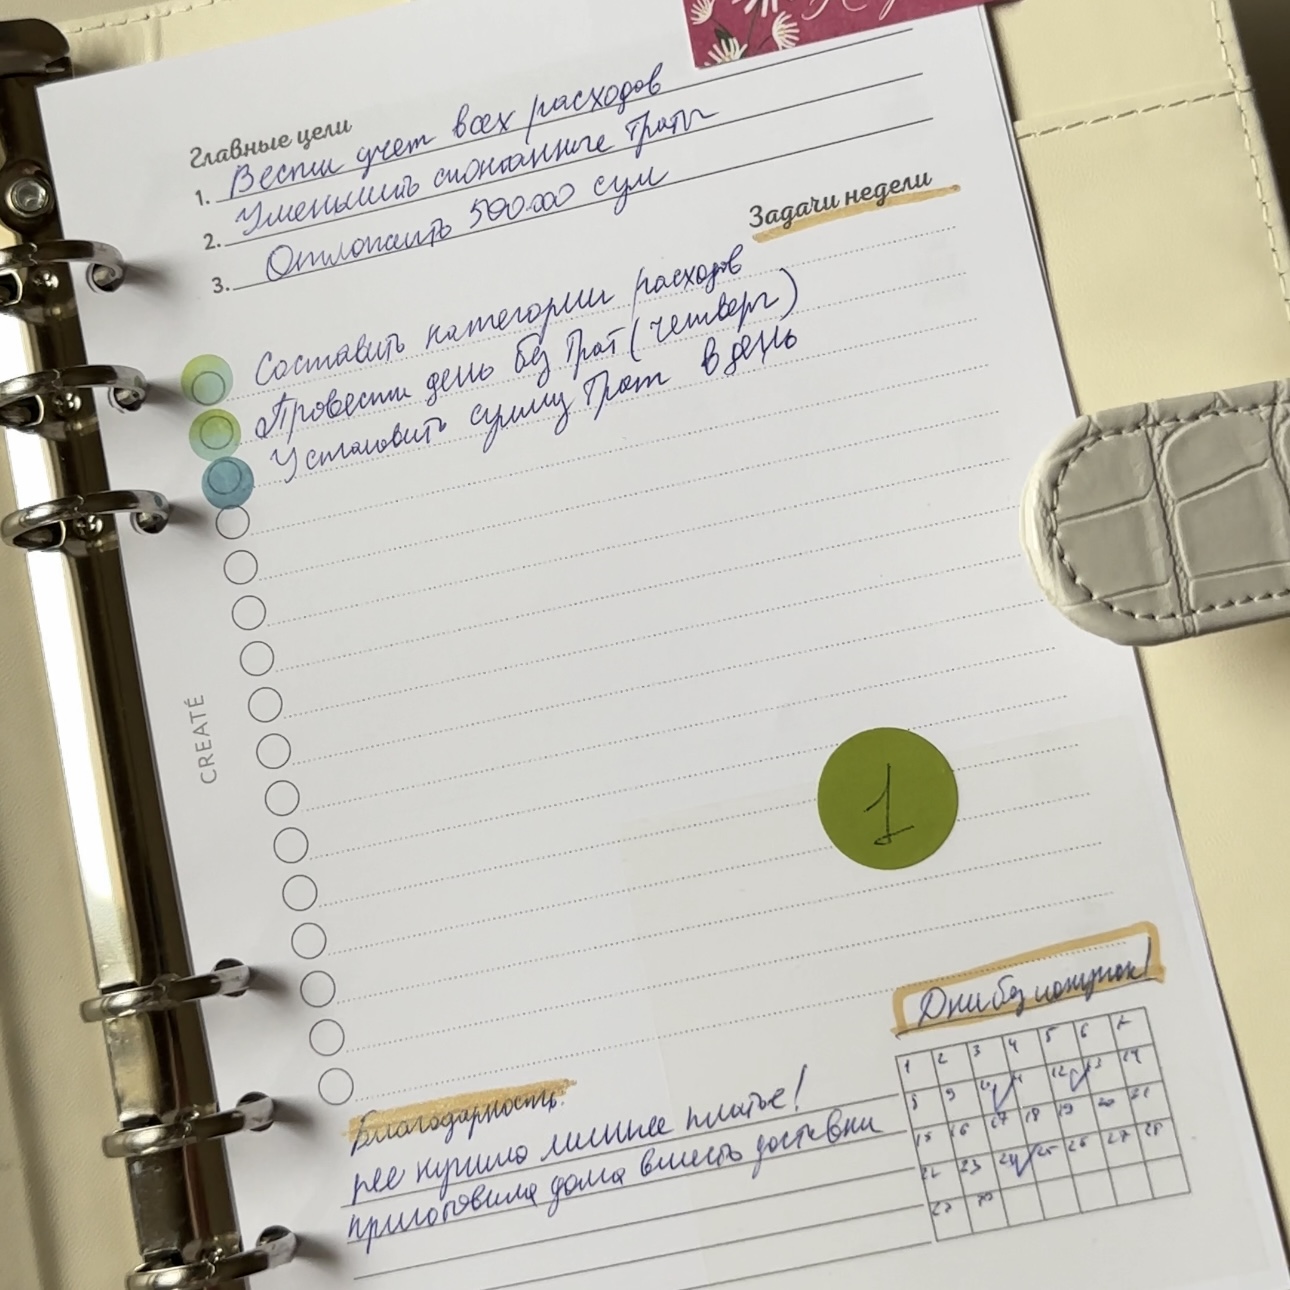 Главные цели
1. Вести учет всех расходов
2. Уменьшить спонтанные траты
3. Отложить 500000 сум
Задачи недели
Составить категории расходов
Провести день без трат (четверг)
Установить сумму трат в день
CREATÉ
1
Дни без покупок!
1 2 3 4 5 6 7
8 9 10 11 12 13 14
15 16 17 18 19 20 21
22 23 24 25 26 27 28
29 30
Благодарность:
не купила лишнее платье!
приготовила дома вместо доставки